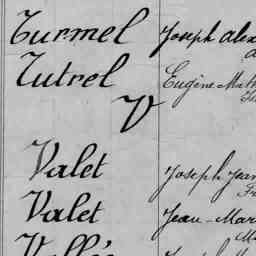 Turmel Joseph Alex
Tutrel Eugène Math
V
Valet Joseph Jean
Valet Jean-Mar
Vallée Joseph